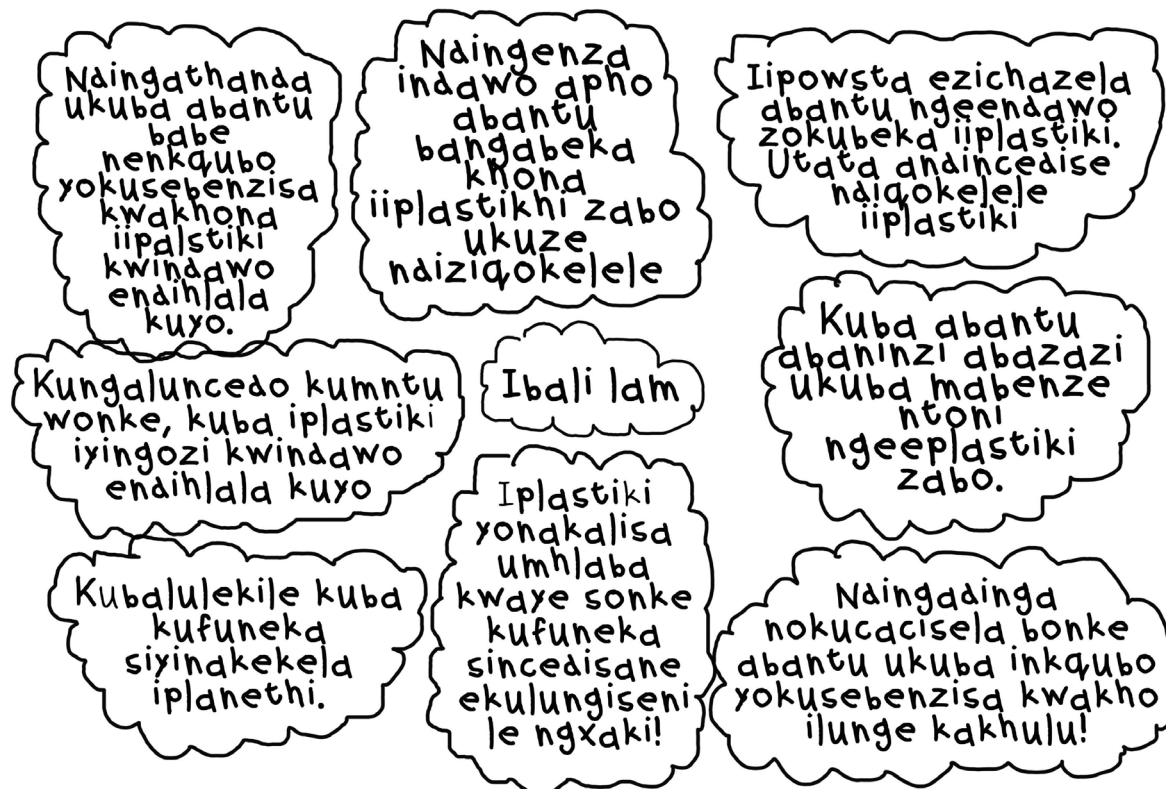 Ndingathanda
ukuba abantu
babe
nenkqubo
yokusebenzisa
kwakhona
iipalstiki
kwindawo
endihlala
kuyo.
Ndingenza
indawo apho
abantu
bangabeka
khona
iiplastikhi zabo
ukuze
ndiziqokelele
Iipowsta ezichazela
abantu ngeendawo
zokubeka iiplastiki.
Utata andincedise
ndiqokelele
iiplastiki
Kungaluncedo kumntu
wonke, kuba iplastiki
iyingozi kwindawo
endihlala kuyo
Ibali lam
Kuba abantu
abaninzi abazazi
ukuba mabenze
ntoni
ngeeplastiki
zabo.
Kubalulekile kuba
kufuneka
siyinakekela
iplanethi.
Iplastiki
yonakalisa
umhlaba
kwaye sonke
kufuneka
sincedisane
ekulungiseni
le ngxaki!
Ndingadinga
nokucacisela bonke
abantu ukuba inkqubo
yokusebenzisa kwakho
ilunge kakhulu!